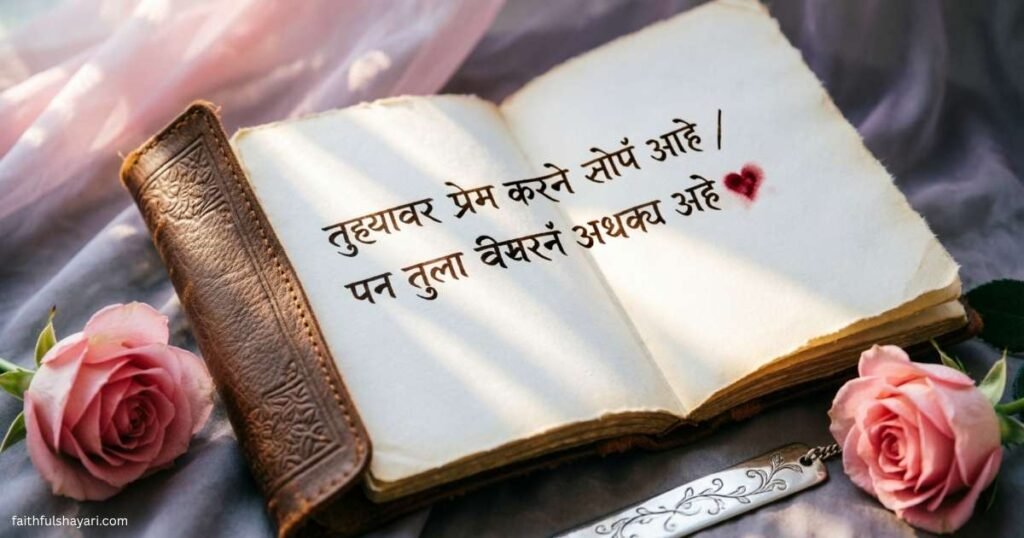 तुहयावर प्रेम करने सोपॅ आहे /
पन तुला वीसरनॅ अथक्य अहे
faithfulshayari.com